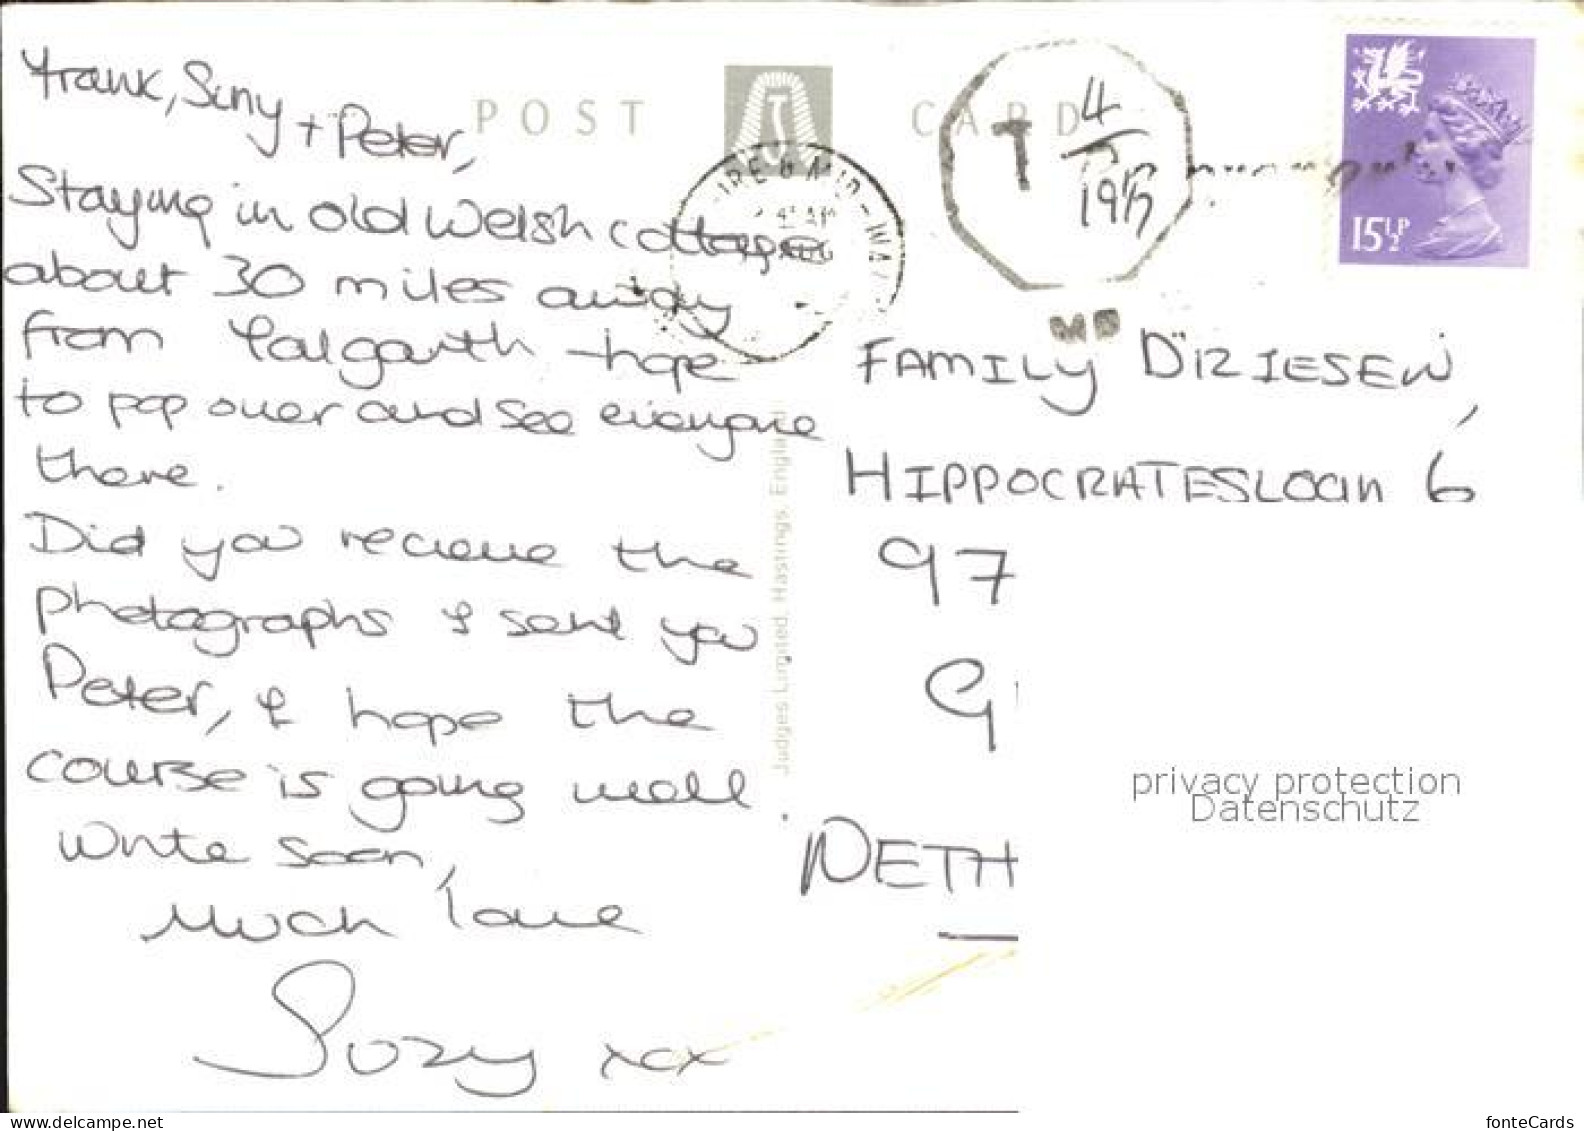 Frank, Siny + Peter,
Staying in old Welsh cottage
about 30 miles away
from Talgarth - hope
to pop over and see everyone
there.
Did you recieve the
photographs I sent you
Peter, I hope the
course is going well.
Write soon,
Much love
Suzy xxx
POST CARD
Judges Limited, Hastings, England
T 4
15½P
FAMILY
HIPPOCRATESLAAN 6
97
G
NETH
privacy protection
Datenschutz
delcampe.net
fonteCards